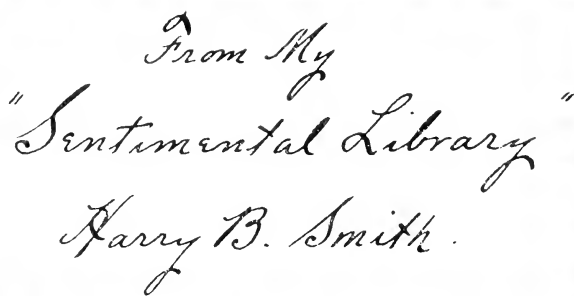 From My
"Sentimental Library"
Harry B. Smith.